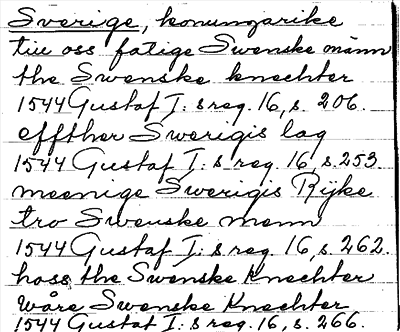 Sverige, konungarike
till oss fatige Swenske männ
the Swenske knechter
1544 Gustaf I: s reg. 16, s. 206.
effther Swerigis lag
1544 Gustaf I: s reg. 16, s. 253.
meenige Swerigis Rijke
tro Swenske menn
1544 Gustaf I: s reg. 16, s. 262.
hoss the Swenske Knechter
wåre Swenske Knechter
1544 Gustaf I: s reg. 16, s. 266.